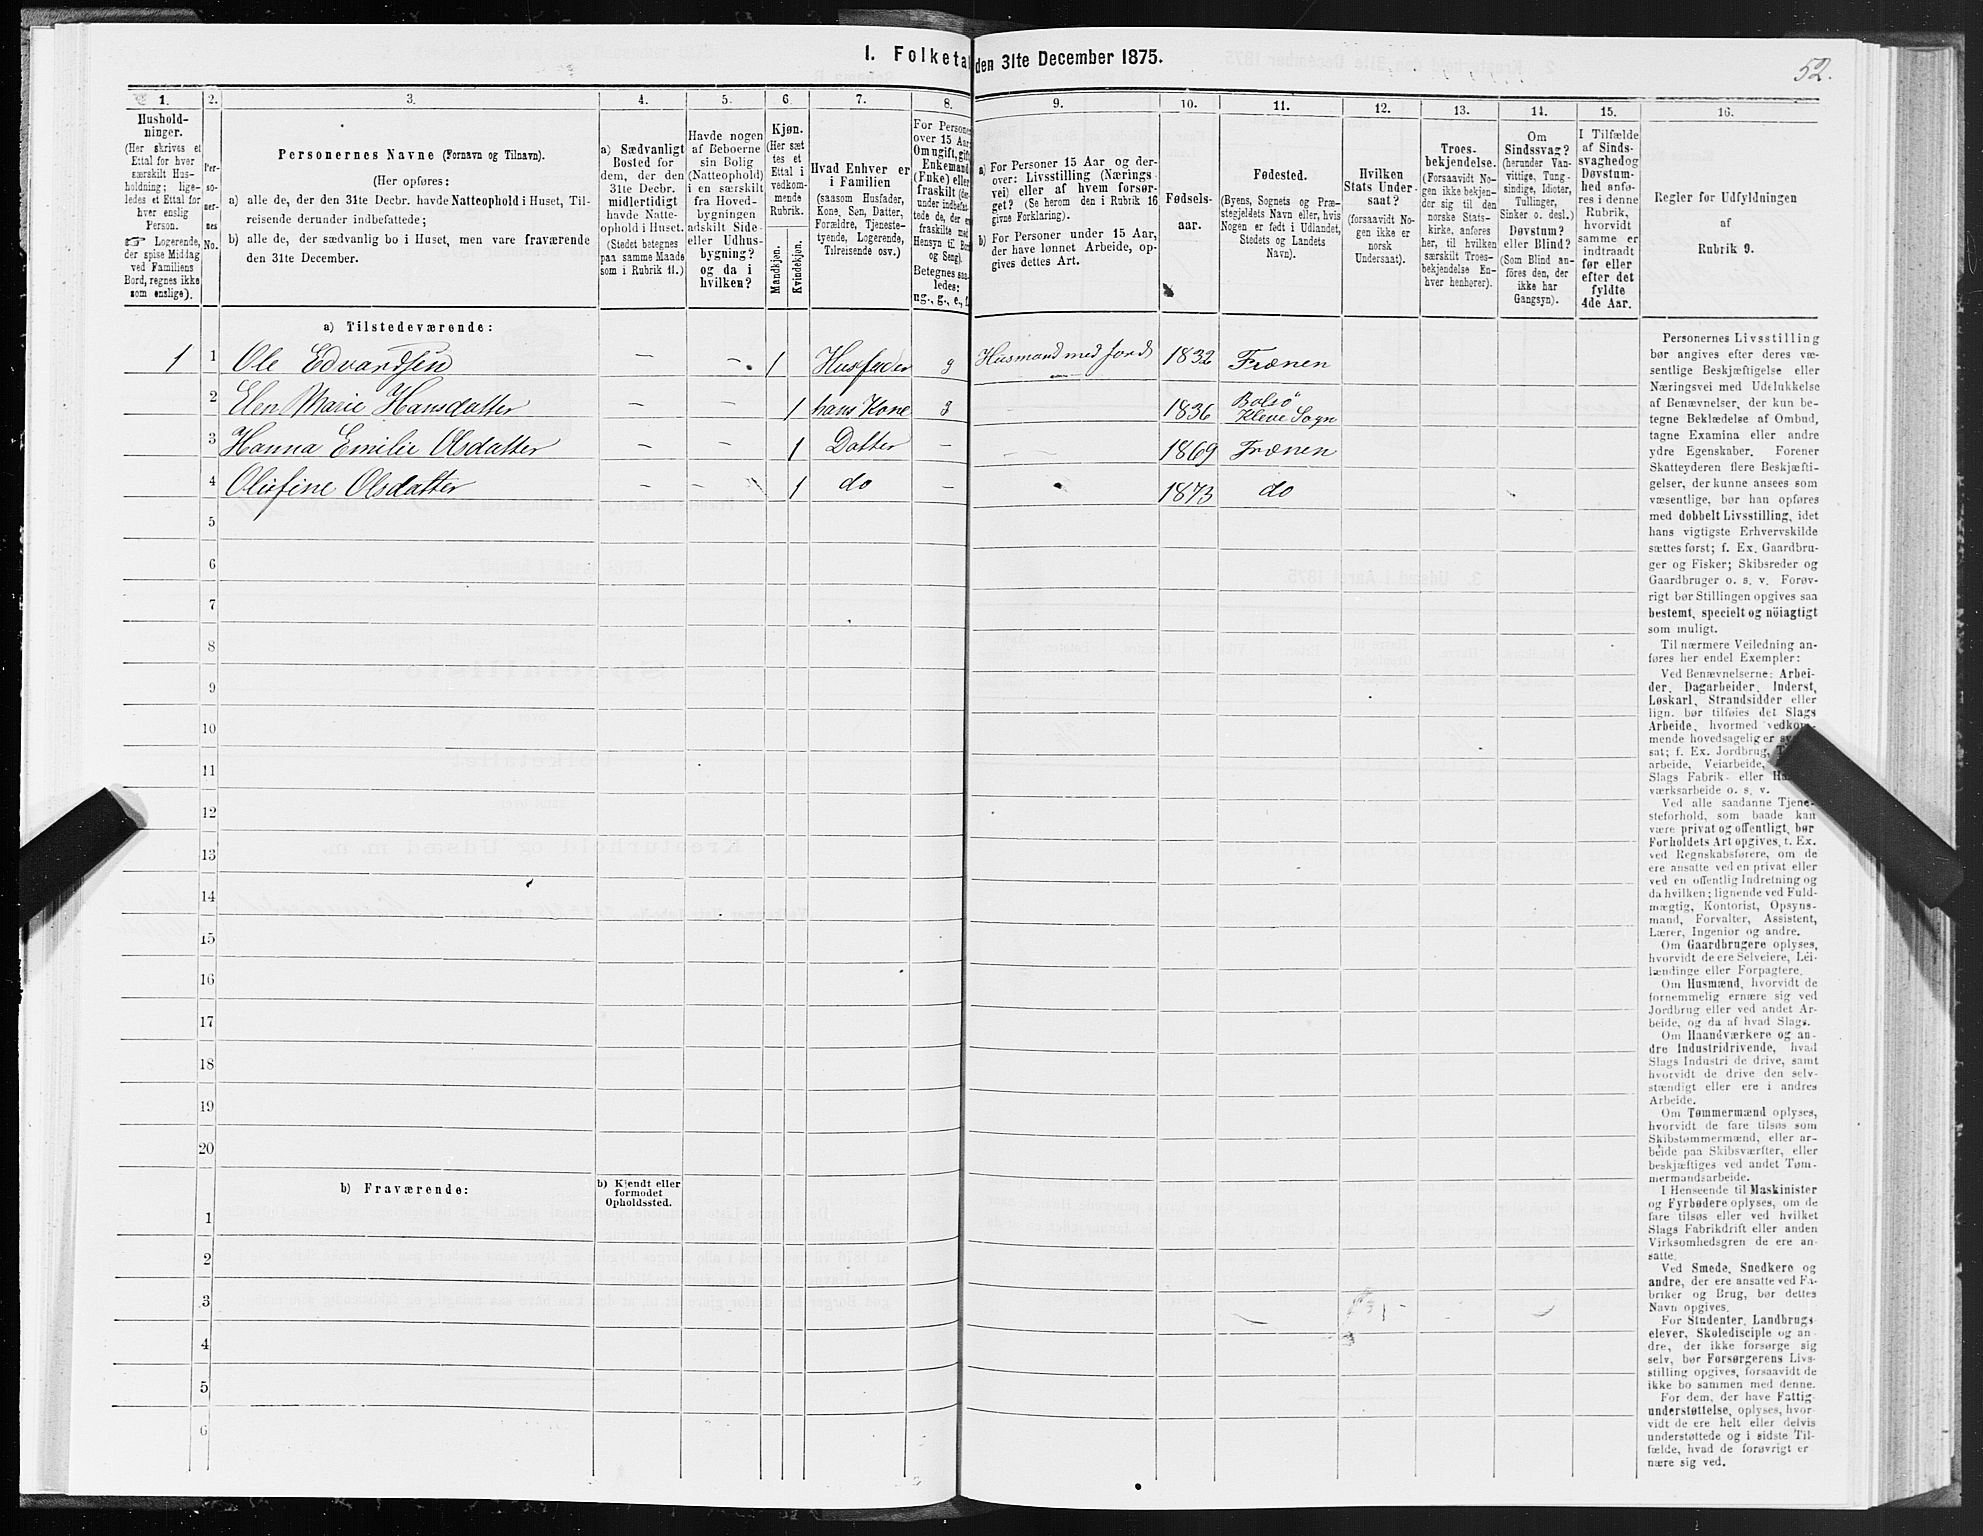 I. Folketal den 31te December 1875.
52.
1.
Hushold-
ninger.
(Her skrives et
Ettal for hver
særskilt Hus-
holdning; lige-
ledes et Ettal for
hver enslig
Person.
☞ Logerende,
der spise Middag
ved Familiens
Bord, regnes ikke
som enslige).
2.
Per-
so-
ner-
nes
No.
3.
Personernes Navne (Fornavn og Tilnavn).
(Her opføres:
a) alle de, der den 31te Decbr. havde Natteophold i Huset, Til-
reisende derunder indbefattede;
b) alle de, der sædvanlig bo i Huset, men vare fraværende
den 31te December.
4.
a) Sædvanligt
Bosted for
dem, der den
31te Decbr.
midlertidigt
havde Natte-
ophold i Huset.
(Stedet betegnes
paa samme Maade
som i Rubrik 11.)
5.
Havde nogen
af Beboerne
sin Bolig
(Natteophold)
i en særskilt
fra Hoved-
bygningen
adskilt Side-
eller Udhus-
bygning?
og da i
hvilken?
6.
Kjøn.
(Her sæt
tes et
Ettal i
vedkom-
mende
Rubrik.
Mandkjøn.
Kvindekjøn.
7.
Hvad Enhver er
i Familien
(saasom Husfader,
Kone, Søn, Datter,
Forældre, Tjeneste-
tyende, Logerende,
Tilreisende osv.)
8.
For Personer
over 15 Aar:
Om ugift, gift,
Enkemand
(Enke) eller
fraskilt (der-
under indbefat-
tede de, der ere
fraskilte med
Hensyn til Bord
og Seng).
Betegnes saa-
ledes:
ug., g., e., f.
9.
a) For Personer 15 Aar og der-
over: Livsstilling (Nærings-
vei) eller af hvem forsør-
get? (Se herom den i Rubrik 16
givne Forklaring).
b) For Personer under 15 Aar,
der have lønnet Arbeide, op-
gives dettes Art.
10.
Fødsels-
aar.
11.
Fødested.
(Byens, Sognets og Præ-
stegjeldets Navn eller, hvis
Nogen er født i Udlandet,
Stedets og Landets
Navn).
12.
Hvilken
Stats Under-
saat?
(forsaavidt No-
gen ikke er
norsk
Undersaat).
13.
Troes-
bekjendelse.
(Forsaavidt No-
gen ikke bekjen-
der sig til den
norske Stats-
kirke, anføres
her, til hvilken
særskilt Troes-
bekjendelse En-
hver henhører).
14.
Om
Sindssvag?
(herunder Van-
vittige, Tung-
sindige, Idioter,
Tullinger,
Sinker o. desl.)
Døvstum?
eller Blind?
(Som Blind an-
føres den, der
ikke har
Gangsyn).
15.
I Tilfælde
af Sinds-
svaghed og
Døvstum-
hed anfø-
res i denne
Rubrik,
hvorvidt
samme er
indtraadt
før eller
efter det
fyldte
4de Aar.
16.
Regler for Udfyldningen
af
Rubrik 9.
a) Tilstedeværende:
1 1 Ole Edvardsen — — 1 Husfader g Husmand med Jord 1832 Frænen
2 Elen Marie Hansdatter — — 1 hans Kone g — 1836 Bolsø Kleve Sogn
3 Hanna Emilie Olsdatter — — 1 Datter — — 1869 Frænen
4 Olufine Olsdatter — — 1 do — 1873 do
5
6
7
8
9
10
11
12
13
14
15
16
17
18
19
20
b) Fraværende:
b) Kjendt eller
formodet
Opholdssted.
1
2
3
4
5
6
Personernes Livsstilling
bør angives efter deres væ-
sentlige Beskjæftigelse eller
Næringsvei med Udelukkelse
af Benævnelser, der kun be-
tegne Beklædelse af Ombud,
tagne Examina eller andre
ydre Egenskaber. Forener
Skatteyderen flere Beskjæfti-
gelser, der kunne ansees som
væsentlige, bør han opføres
med dobbelt Livsstilling, idet
hans vigtigste Erhvervskilde
sættes først; f. Ex. Gaardbru-
ger og Fisker; Skibsreder og
Gaardbruger o. s. v. Forøv-
rigt bør Stillingen opgives saa
bestemt, specielt og nöiagtigt
som muligt.
Til nærmere Veiledning an-
føres her endel Exempler:
Ved Benævnelserne: Arbei-
der, Dagarbeider, Inderst,
Løskarl, Strandsidder eller
lign. bør tilføies det Slags
Arbeide, hvormed vedkom-
mende hovedsagelig er
sat; f. Ex. Jordbrug,
arbeide, Veiarbeide,
Slags Fabrik- eller
værksarbeide o. s. v.
Ved alle saadanne Tjene-
steforhold, som baade kan
være privat og offentligt, bør
Forholdets Art opgives, f. Ex.
ved Regnskabsførere, om de
ere ansatte ved en privat eller
ved en offentlig Indretning og
da hvilken; lignende ved Fuld-
mægtig, Kontorist, Opsyns-
mand, Forvalter, Assistent,
Lærer, Ingeniør og andre.
Om Gaardbrugere oplyses,
hvorvidt de ere Selveiere, Lei-
lændinge eller Forpagtere.
Om Husmænd, hvorvidt de
fornemmelig ernære sig ved
Jordbrug eller ved andet Ar-
beide, og da af hvad Slags.
Om Haandværkere og an-
dre Industridrivende, hvad
Slags Industri de drive, samt
hvorvidt de drive den selv-
stændigt eller ere i andres
Arbeide.
Om Tømmermænd oplyses,
hvorvidt de fare tilsøs som
Skibstømmermænd, eller ar-
beide paa Skibsværfter, eller
beskjæftiges ved andet Tøm-
mermandsarbeide.
I Henseende til Maskinister
og Fyrbødere oplyses, om de
fare tilsøs eller ved hvilket
Slags Fabrikdrift eller anden
Virksomhedsgren de ere an-
satte.
Ved Smede, Snedkere og
andre, der ere ansatte ved Fa-
briker og Brug, bør dettes
Navn opgives.
For Studenter, Landbrugs-
elever, Skoledisciple og an-
dre, der ikke forsørge sig
selv, bør Forsørgerens Livs-
stilling opgives, forsaavidt de
ikke bo sammen med denne.
For dem, der have Fattig-
understøttelse, oplyses, hvor-
vidt de ere helt eller delvis
understøttede og i sidste Til-
fælde, hvad de forøvrigt er-
nære sig ved.